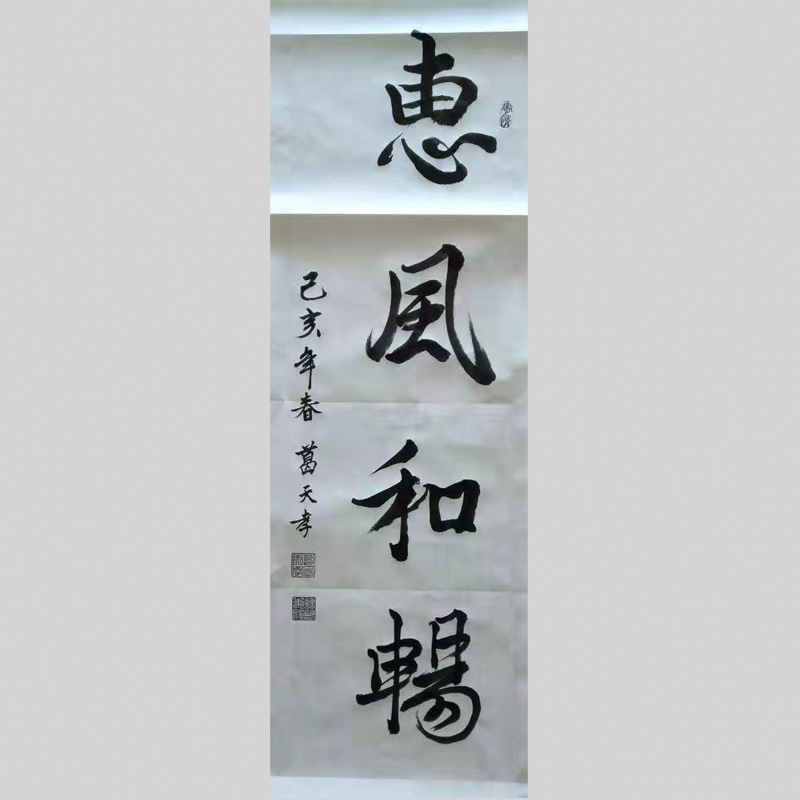 惠風和暢
己亥年春 葛天孝